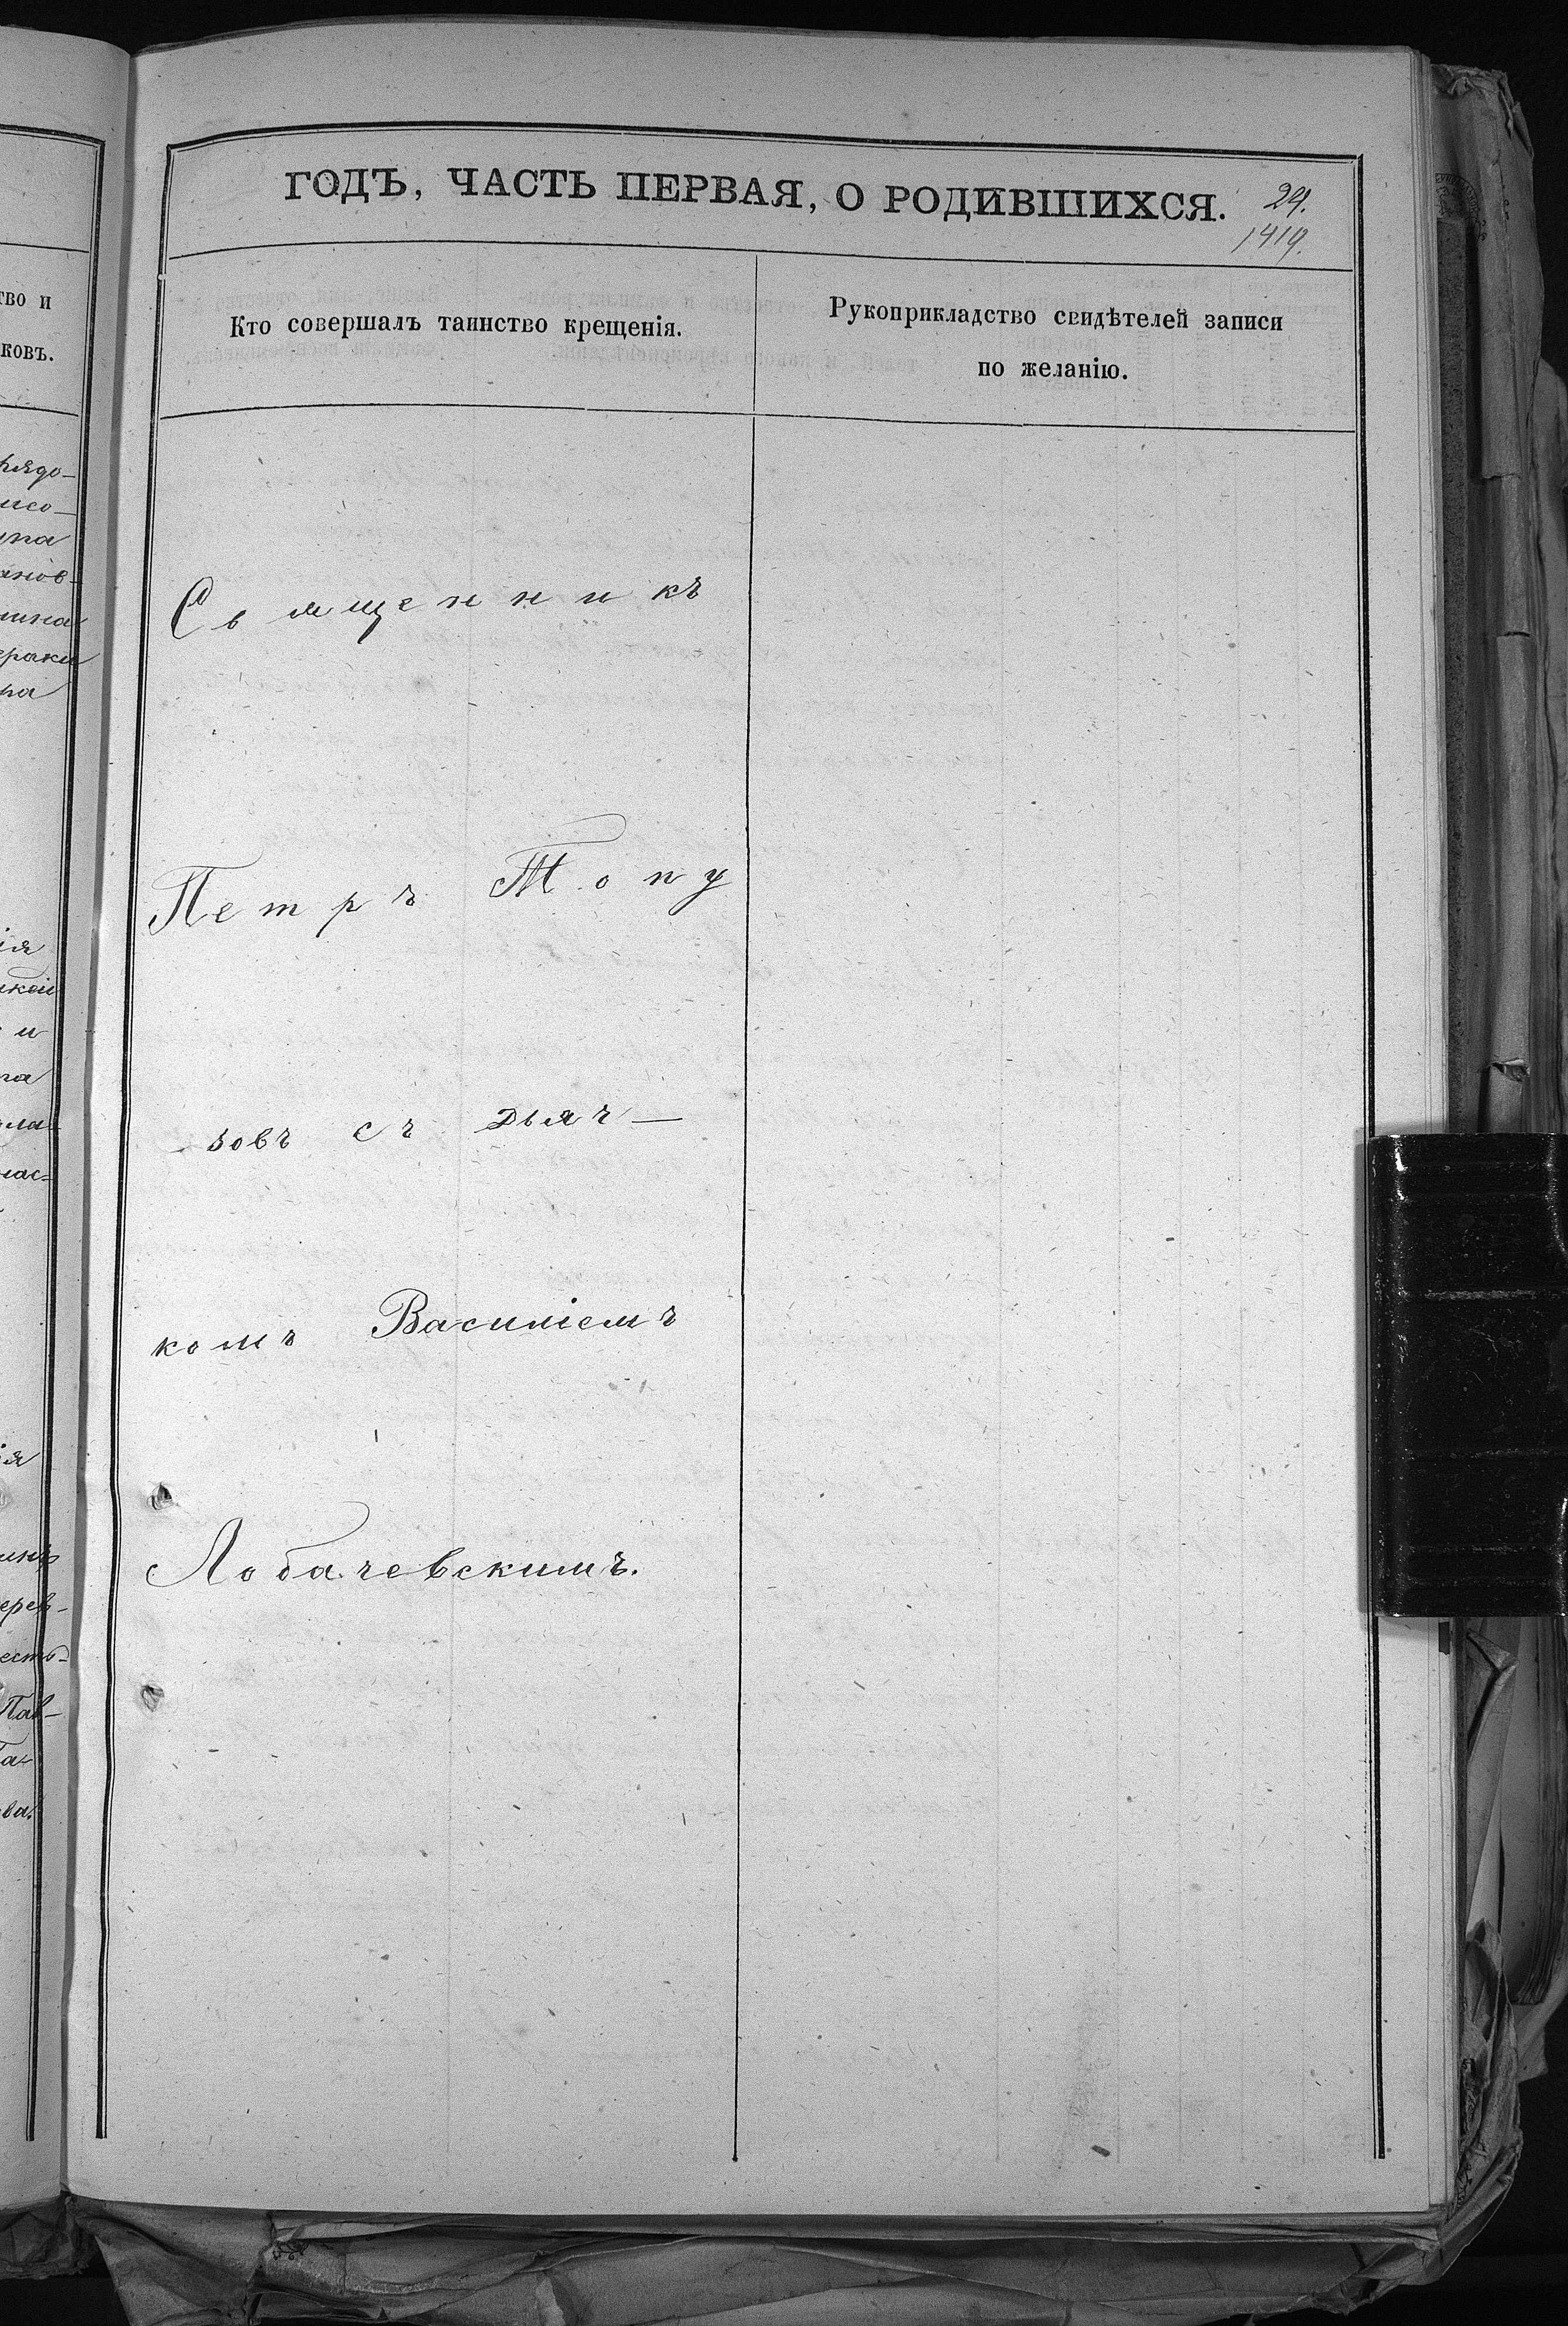 ГОДЪ, ЧАСТЬ ПЕРВАЯ, О РОДИВШИХСЯ.
29.
1419.
Кто совершалъ таинство крещенія.
Рукоприкладство свидѣтелей записи
по желанію.
Священникъ
Петръ Топу
зовъ съ дьяч—
комъ Василіемъ
Лобачевскимъ.
тво и
ковъ.